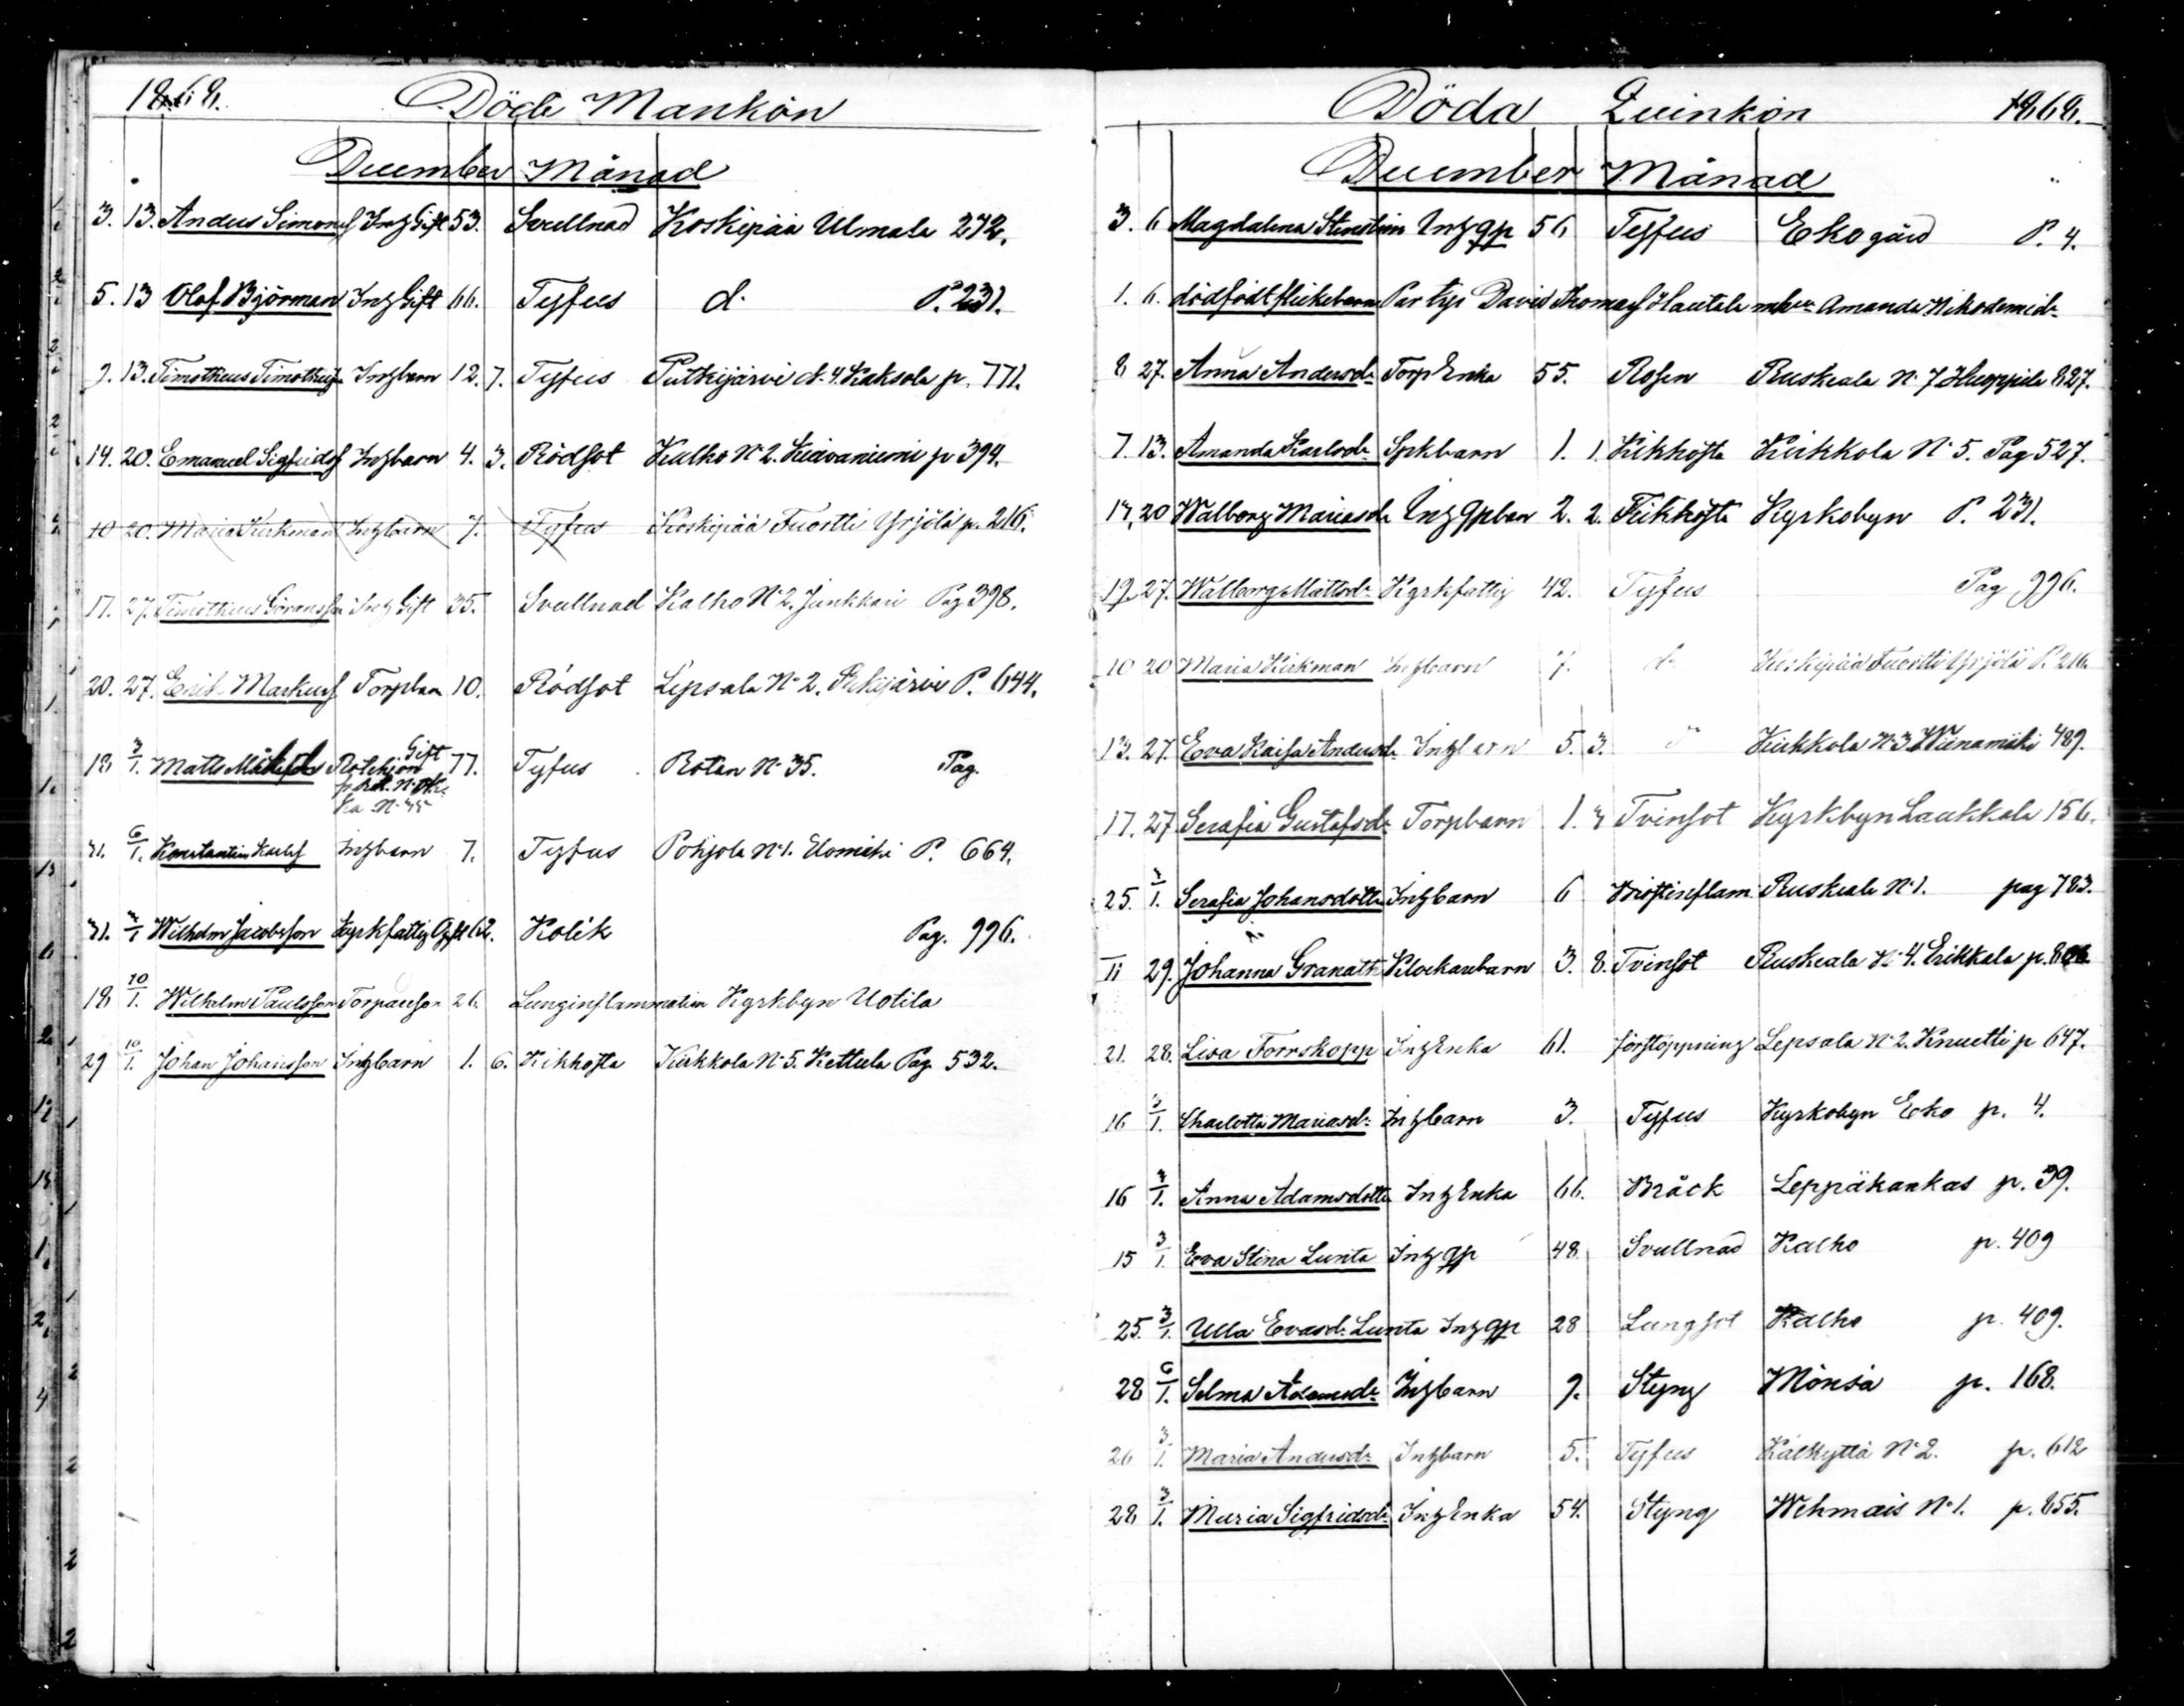 1868. Döde Mankön
December Månad
3. 13. Anders Simonsf Inhg Gift 53. Svullnad Koskipää Ulmala 272.
5. 13 Olof Björman Inhg Gift 66. Tyfus d. P. 231.
9. 13. Timotheus Timotheusf Inhgbarn 12. 7. Tyfus Putkijärvi N. 4. Kaksola p. 771.
14. 20. Emanuel Sigfridsf Inhgbarn 4. 3. Rödsot Kalho N. 2. p 394.
10 20. Maria Kirkman Inhgbarn 7. Tyfus Koskipää Tuostti Yrjölä p. 216.
17. 27. Timotheus Göransson Inhg Gift 35. Svullnad Kalho N. 2. Junkkari Pag 398.
20. 27. Erik Markusf Torpbarn 10. Rödsot Lepsala N. 2. P. 644.
18 3/1. Matts Rotehjon Gift 77. Tyfus Rotan N. 35. Pag.
31. 6/1. Konstantin Karlsf Inhgbarn 7. Tyfus Pohjola N. 1. P. 664.
31. 3/1 Wilhelm Jacobsson Kyrkfattig Gift 62. Kolik Pag. 996.
18 10/1. Wilhelm Paulsson Torpareson 26. Lunginflammation Kyrkbyn Uotila
29 10/1. Johan Johansson Inhgbarn 1. 6. Kikhosta Kirkkola N. 5. Kettula Pag. 532.
Döda Quinkön 1868.
December Månad
3. 6 Magdalena Inhg qp 56 Tyfus Eko gård P. 4.
1. 6. dödfödt flickebarn Par Torp David Thomasf Hautala m. hu Amanda Nikodemid.
8 27. Anna Andersd. Torp Enka 55. Rosen Ruskeala N. 7 Huoppila 827.
7. 13. Amanda Karlsd. Spkbarn 1. 1. Kikhosta Kirkkola N. 5. Pag 527.
14. 20 Walborg Mariasd. Inhg qpbarn 2. 2. Kikhosta Kyrkobyn P. 231.
19. 27. Walborg Mattsd. Kyrkfattig 42. Tyfus Pag 996.
10 20 Maria Kirkman Inhgbarn 7. d. Koskipää Tuostti Yrjölä P. 216.
13. 27. Eva Kaisa Andersd. Inhgbarn 5. 3. d. Kirkkola N. 3 489.
17. 27 Serafia Gustafsd. Torpbarn 1. 3 Tvinsot Kyrkbyn Laukkala 156.
25. 3/1. Serafia Johansdotter Inhgbarn 6 Bröstinflam. Ruskeala N. 1. pag 783.
11 29. Johanna Granath Klockarebarn 3. 8. Tvinsot Ruskeala N. 4. Erikkala p. 806
21. 28. Lisa Forrskopp Inhg Enka 61. förstoppning Lepsala N. 2. Knuutti p 647.
16 3/1. Charlotta Mariasd. Inhgbarn 3. Tyfus Kyrkobyn Eko p. 4.
16 3/1. Anna Adamsdotter Inhg Enka 66. Bråck Leppäkankas p. 39.
15 3/1. Eva Stina Lunta Inhg qp 48. Svullnad Kalho p. 409
25. 3/1. Ulla Evasd. Lunta Inhg qp 28 Lungsot Kalho p. 409.
28 6/1. Selma Adamsd. Inhgbarn 9. Styng Mönsä p. 168.
26 3/1. Maria Andersd. Inhgbarn 5. Tyfus Kälkyttä N. 2. p. 612
28 3/1. Maria Sigfridsd. Inhg Enka 54. Styng Wehmais N. 1. p. 855.